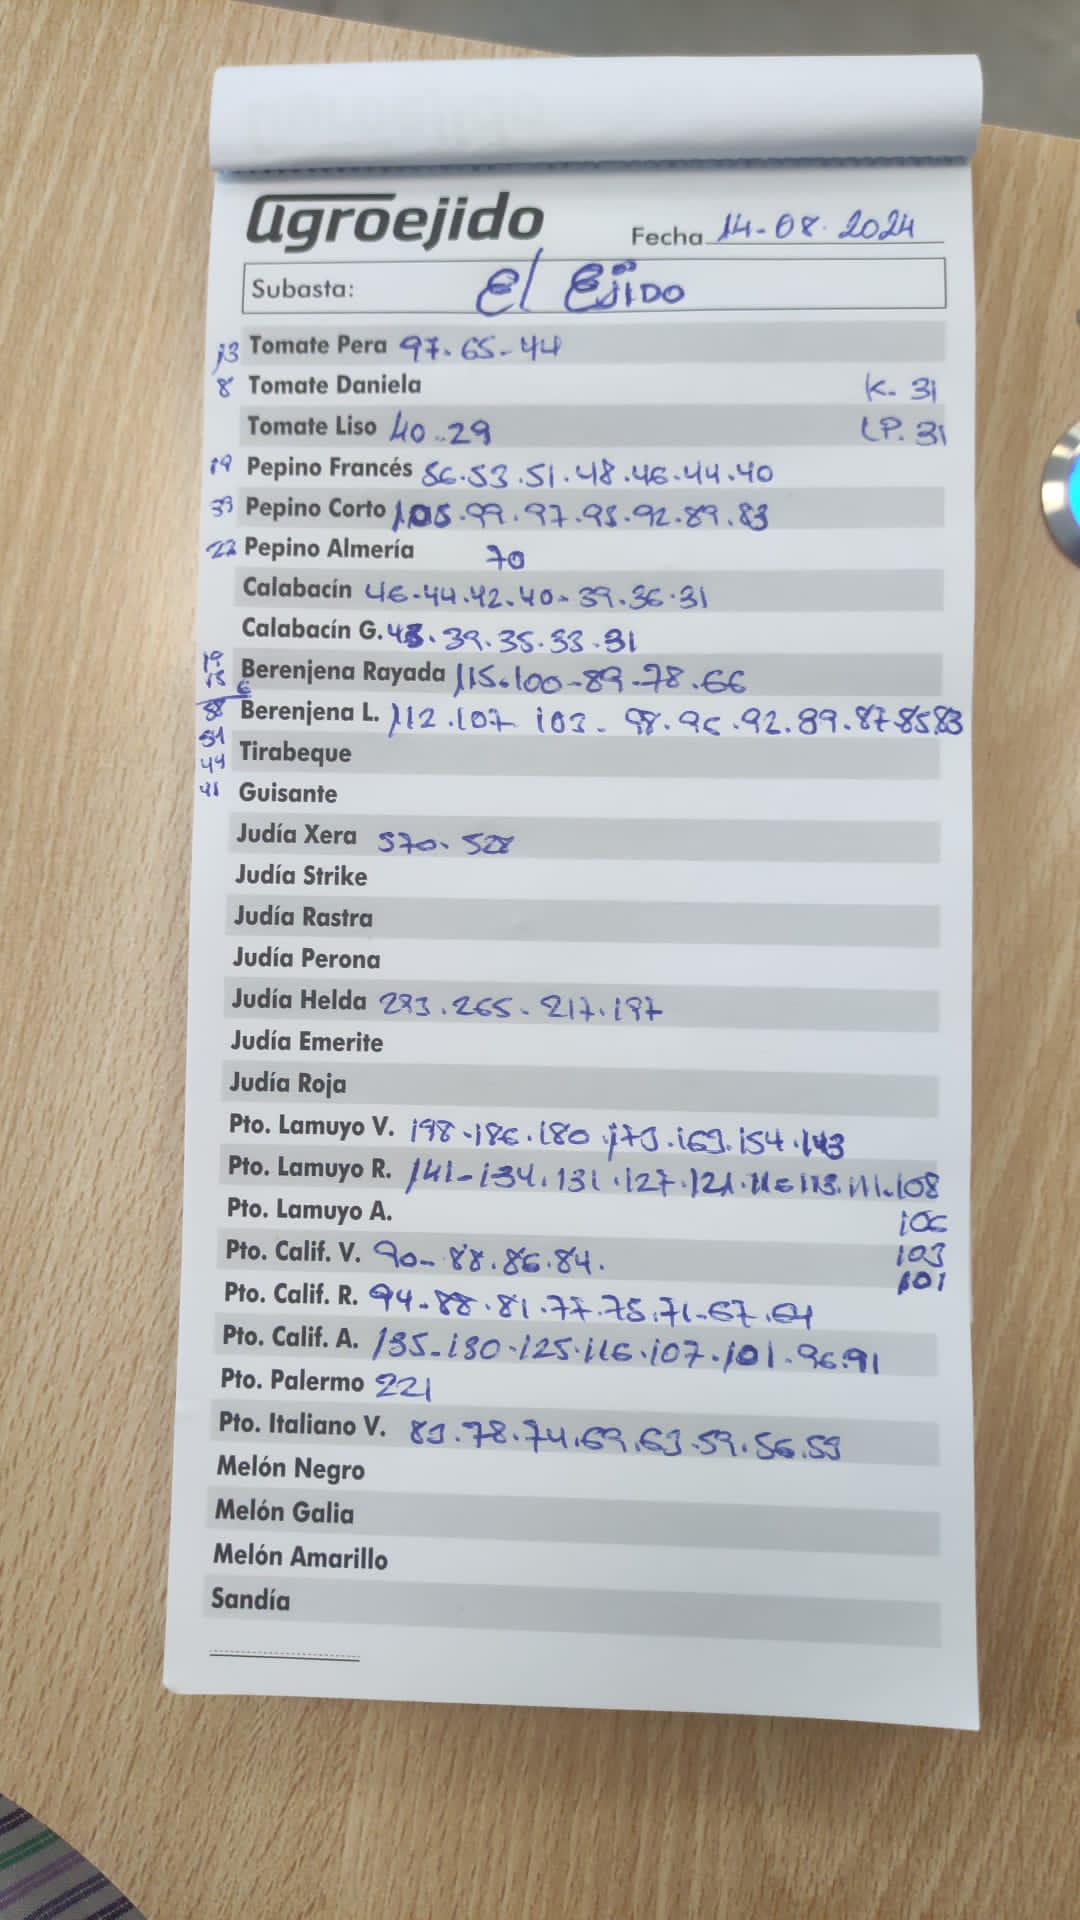 agroejido
Fecha 14-08-2024
Subasta: El Ejido
j3 Tomate Pera 97-65-44
8 Tomate Daniela K. 31
Tomate Liso 40..29 LP. 31
19 Pepino Francés 56.53.51.48.46.44.40
39 Pepino Corto 105.99.97.95.92.89.83
22 Pepino Almería 70
Calabacín 46-44.42.40-39.36.31
Calabacín G. 43.39.35.33.31
19
15 Berenjena Rayada 115.100-89-78.66
6
58 Berenjena L. 112.107 103-98.96.92.89.87-85.83
51
44 Tirabeque
41 Guisante
Judía Xera 570-528
Judía Strike
Judía Rastra
Judía Perona
Judía Helda 293.265-217.197
Judía Emerite
Judía Roja
Pto. Lamuyo V. 198-186.180.173.163.154.143
Pto. Lamuyo R. 141-134.131.127.121.116 113.111.108
Pto. Lamuyo A. 106
Pto. Calif. V. 90-88.86.84. 103
101
Pto. Calif. R. 94-88.81.77.75.71-67.64
Pto. Calif. A. 135-130.125.116.107.101.96.91
Pto. Palermo 221
Pto. Italiano V. 83.78.74.69.63.59.56.53
Melón Negro
Melón Galia
Melón Amarillo
Sandía